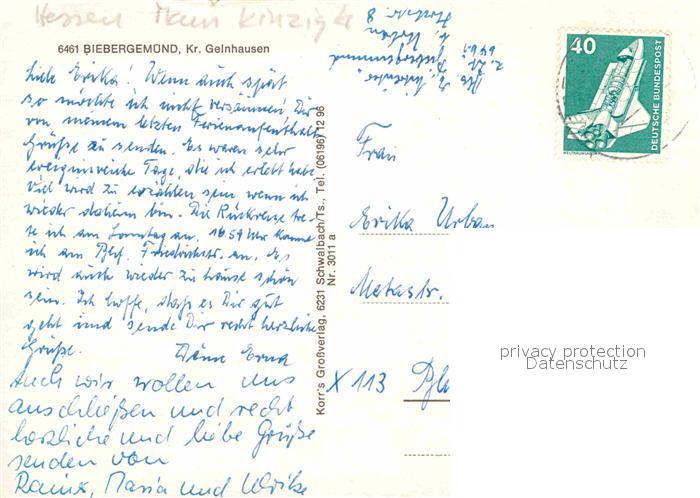 Hessen Main Kinzig
6461 BIEBERGEMÜND, Kr. Gelnhausen
Liebe Erika! Wenn auch spät
so möchte ich nicht versäumen Dir
von meinem letzten Ferienaufenthalt
Grüße zu senden. Es waren sehr
ereignisreiche Tage, die ich erlebt habe
Viel wird zu erzählen sein wenn ich
wieder daheim bin. Die Rückreise tre-
te ich am Sonntag an, 16.59 Uhr komme
ich am Bhf. Friedrichstr. an. Es
wird auch wieder zu Hause schön
sein. Ich hoffe, dass es Dir gut
geht und sende Dir recht herzliche
Grüße. Deine Erna
Auch wir wollen uns
anschließen und recht
herzliche und liebe Grüße
senden von
Rainer, Maria und Ulrike
Korr's Großverlag, 6231 Schwalbach/Ts., Tel. (06196) 12 96
Nr. 3011 a
40
DEUTSCHE BUNDESPOST
Frau
Erika Urban
Metastr.
X 113
privacy protection
Datenschutz